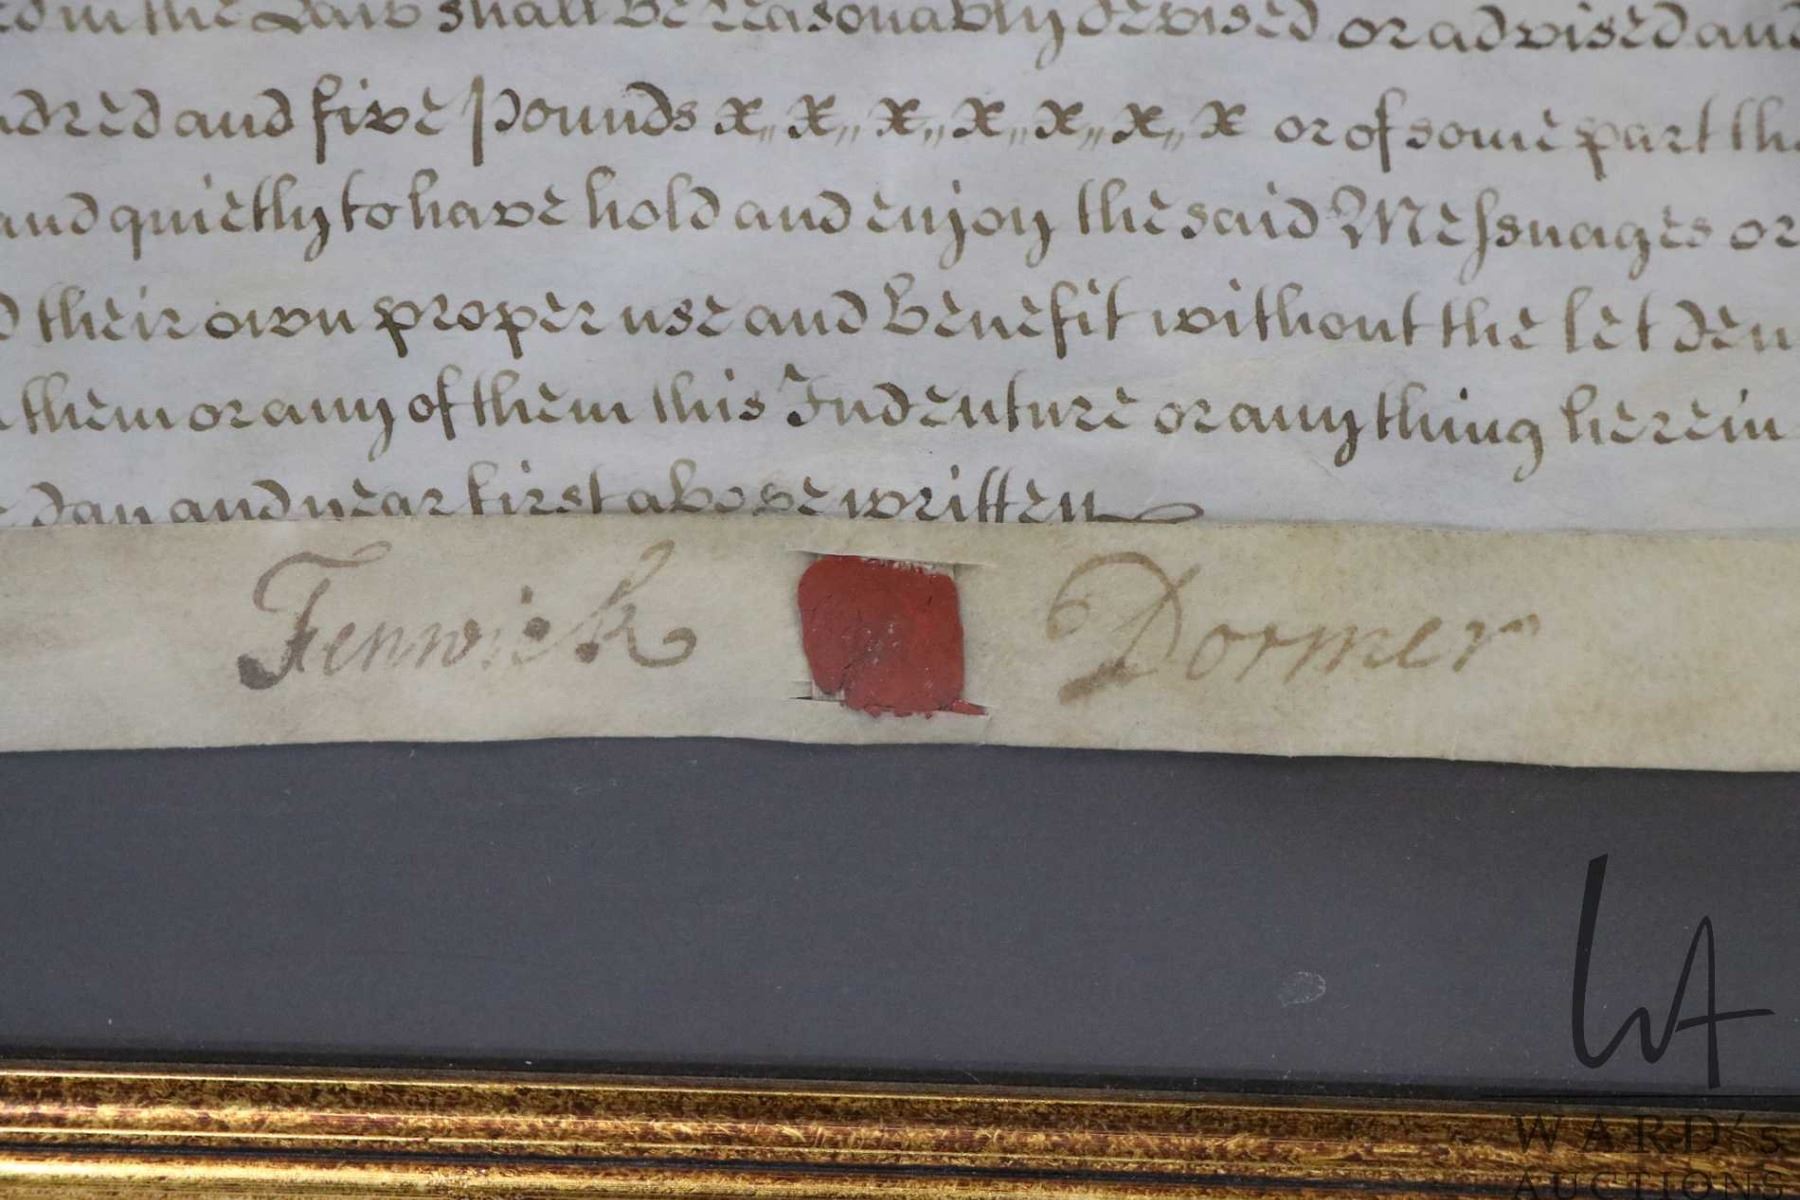 in the Law shall be reasonably devised or advised and
dred and five Pounds x,, x,, x,, x,, x,, x,, x or of some part th
and quietly to have hold and enjoy the said Messuages or
their own proper use and benefit without the let den
them or any of them this Indenture or any thing herein
day and year first above written
Fenwick Dormer
WA
WARD's
AUCTIONS